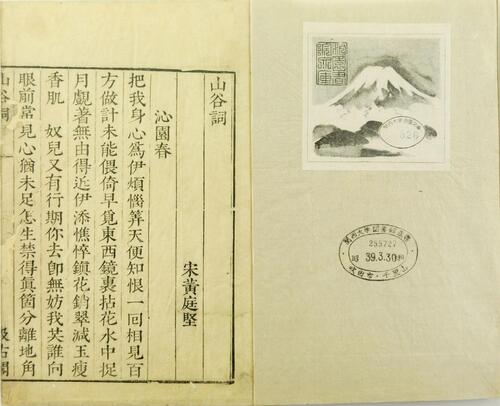 山谷詞
宋黃庭堅
沁園春
把我身心爲伊煩惱筭天便知恨一囘相見百
方做計未能偎倚早覓東西鏡裏拈花水中捉
月覷著無由得近伊添憔悴鎮花銷翠減玉瘦
香肌 奴兒又有行期你去卽無妨我共誰向
眼前常見心猶未足怎生禁得眞箇分離地角
山谷詞
汲古閣
255727
昭 39.3.30 和
吹田市・千里山